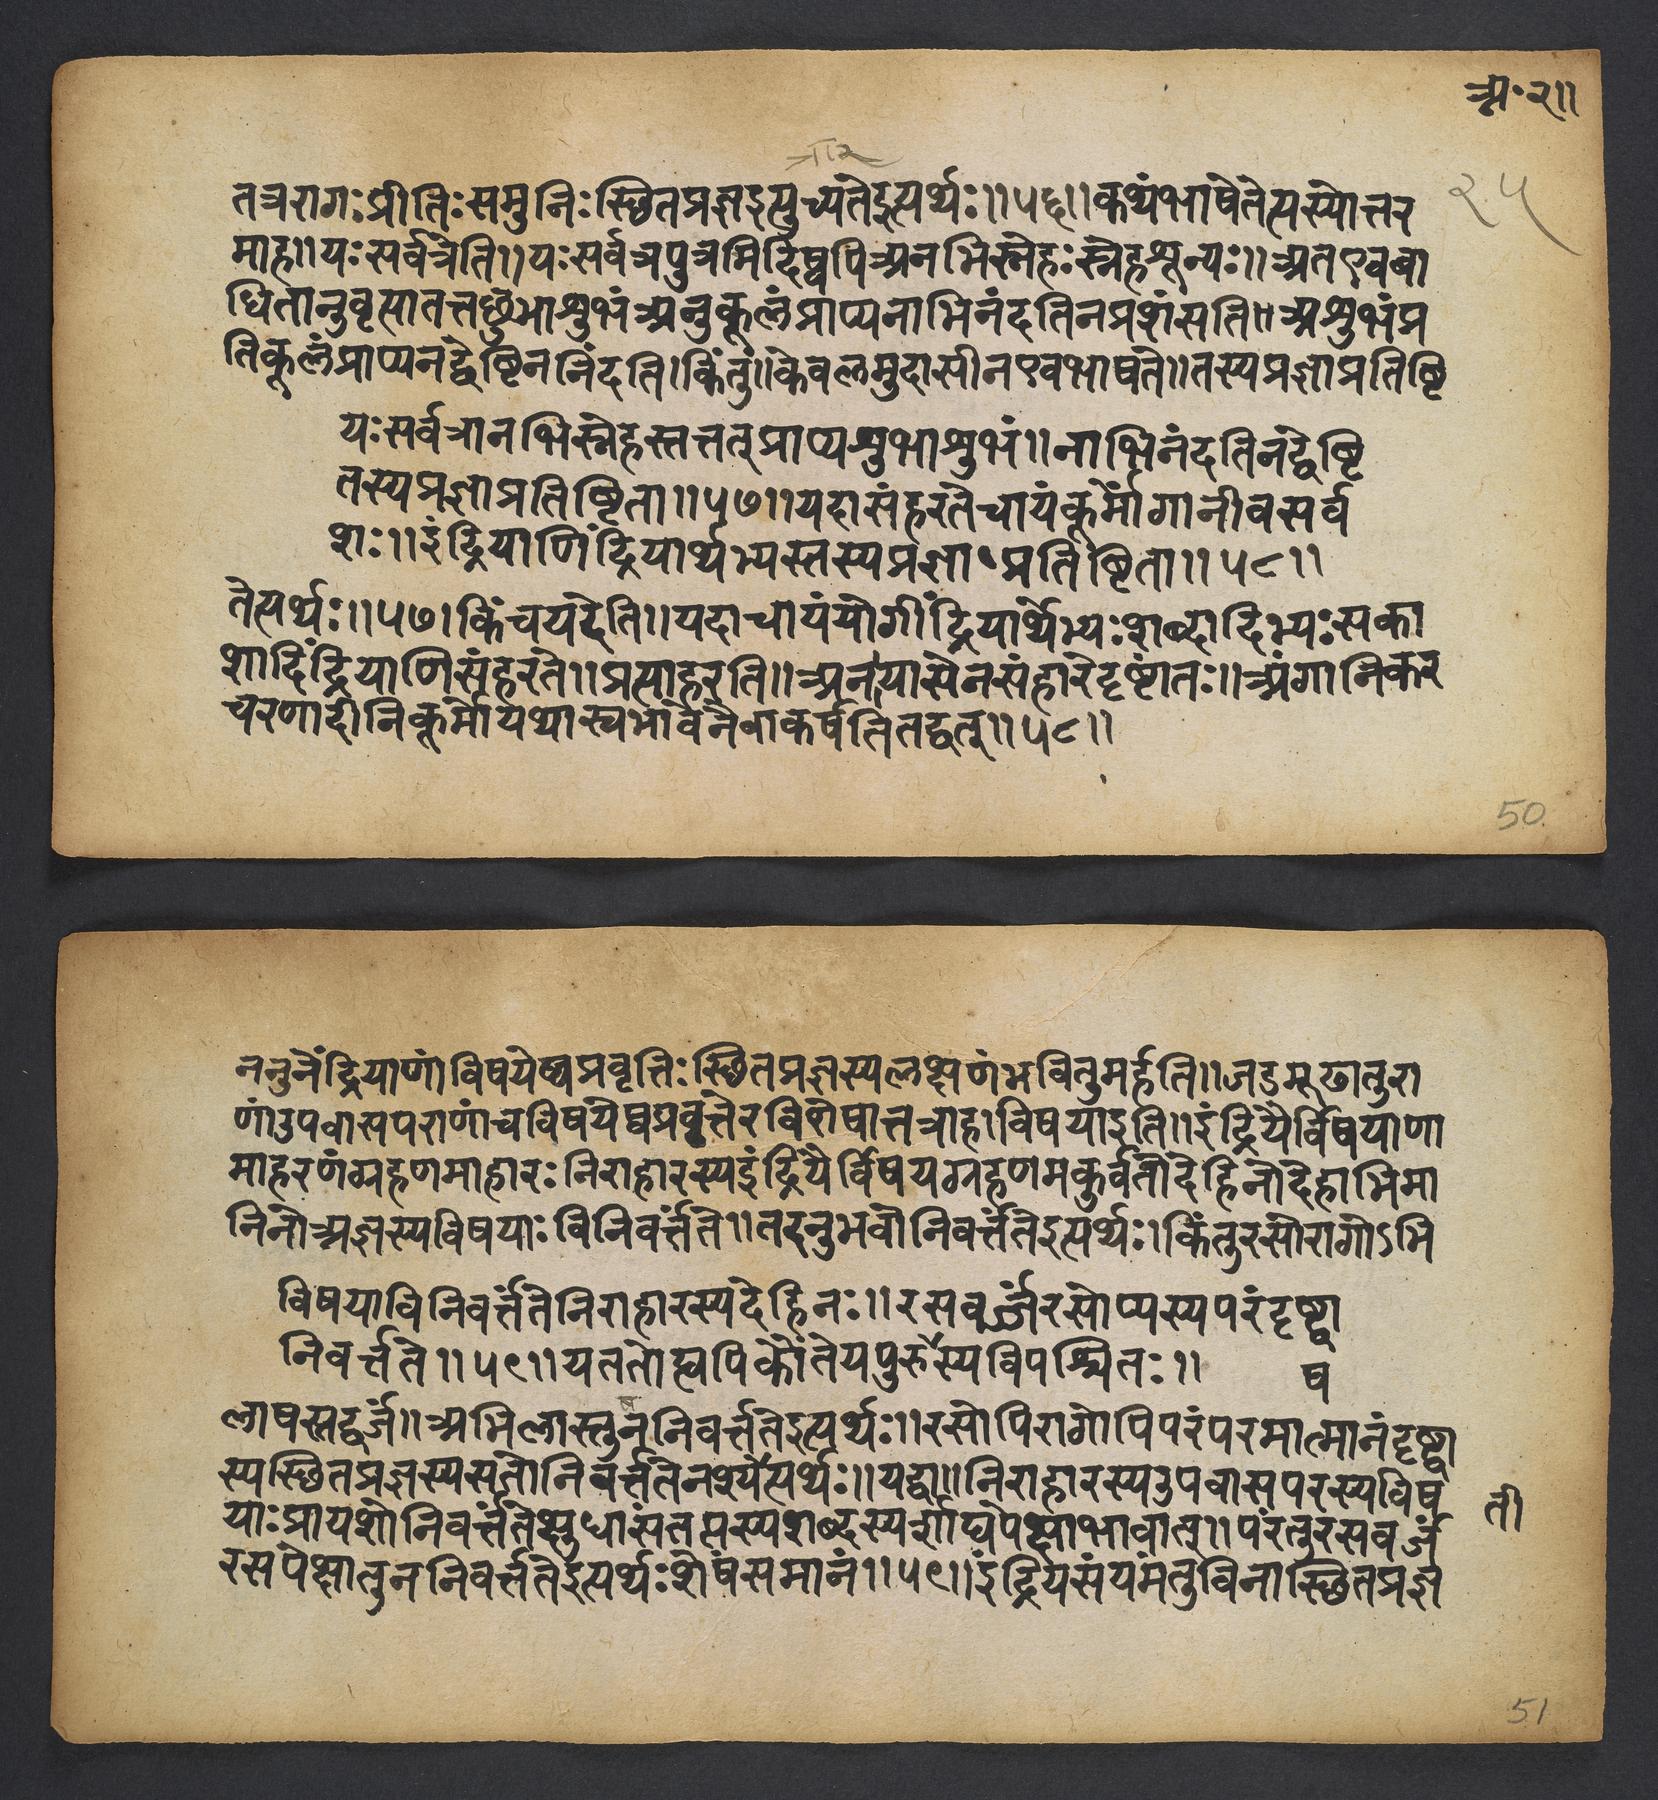 अ॰२॥
२५
तत्ररागःप्रीतिःसमुनिःस्थितप्रज्ञइत्युच्यतेइत्यर्थः॥५६॥कथंभाषेतेत्यस्योत्तर
माह॥यःसर्वत्रेति॥यःसर्वत्रपुत्रमित्रादिष्वपिअनभिस्नेहःस्नेहशून्यः॥अतएवबा
धितानुवृत्यातत्तछुभाशुभंअनुकूलंप्राप्यनाभिनंदतिनप्रशंसति॥अशुभंप्र
तिकूलंप्राप्यनद्वेष्टिननिंदति।किंतुं॥केवलमुदासीनएवभाषते॥तस्यप्रज्ञाप्रतिष्ठि
यःसर्वत्रानभिस्नेहस्तत्तत्प्राप्यशुभाशुभं॥नाभिनंदतिनद्वेष्टि
तस्यप्रज्ञाप्रतिष्ठिता॥५७॥यदासंहरतेचायंकूर्मोंगानीवसर्व
शः॥इंद्रियाणिंद्रियार्थेभ्यस्तस्यप्रज्ञाप्रतिष्ठिता॥५८॥
तेत्यर्थः॥५७।किंचयदेति॥यदाचायंयोगींद्रियार्थेभ्यःशब्दादिभ्यःसका
शादिंद्रियाणिसंहरते॥प्रत्याहरति॥अनायासेनसंहारेदृष्टांतः॥अंगानिकर
चरणादीनिकूर्मोयथास्वभावेनैवाकर्षतितद्वत्॥५८॥
50
ननुनेंद्रियाणांविषयेष्वप्रवृत्तिःस्थितप्रज्ञस्यलक्षणंभवितुमर्हति॥जडमूढातुरा
णांउपवासपराणांचविषयेष्वप्रवृत्तेरविशेषात्तत्राह।विषयाइति॥इंद्रियैर्विषयाणा
माहरणंग्रहणमाहारःनिराहारस्यइंद्रियैर्विषयग्रहणमकुर्वतोदेहिनोदेहाभिमा
निनोअज्ञस्यविषयाःविनिवर्त्तते॥तदनुभवोनिवर्त्ततेइत्यर्थः।किंतुरसोरागोऽभि
विषयाविनिवर्त्ततेनिराहारस्यदेहिनः॥रसवर्ज्जंरसोप्यस्यपरंदृष्ट्वा
निवर्त्तते॥५९॥यततोह्यपिकौंतेयपुरुस्यविपश्चितः॥
ष
लाषस्तद्वर्ज्जं॥अभिलास्तुननिवर्त्ततेइत्यर्थः॥रसोपिरागोपिपरंपरमात्मानंदृष्ट्वा
स्यस्थितप्रज्ञस्यसतोनिवर्त्ततेनश्येत्यर्थः॥यद्वा॥निराहारस्यउपवासपरस्यविष
ती
याःप्रायशोनिवर्त्ततेक्षुधासंतप्तस्यशब्दस्पर्शाद्यपेक्षाभावात्॥परंतुरसवर्ज्जं
रसपेक्षातुननिवर्त्ततेइत्यर्थःशेषंसमानं॥५९॥इंद्रियसंयमंतुविनास्थितप्रज्ञ
51